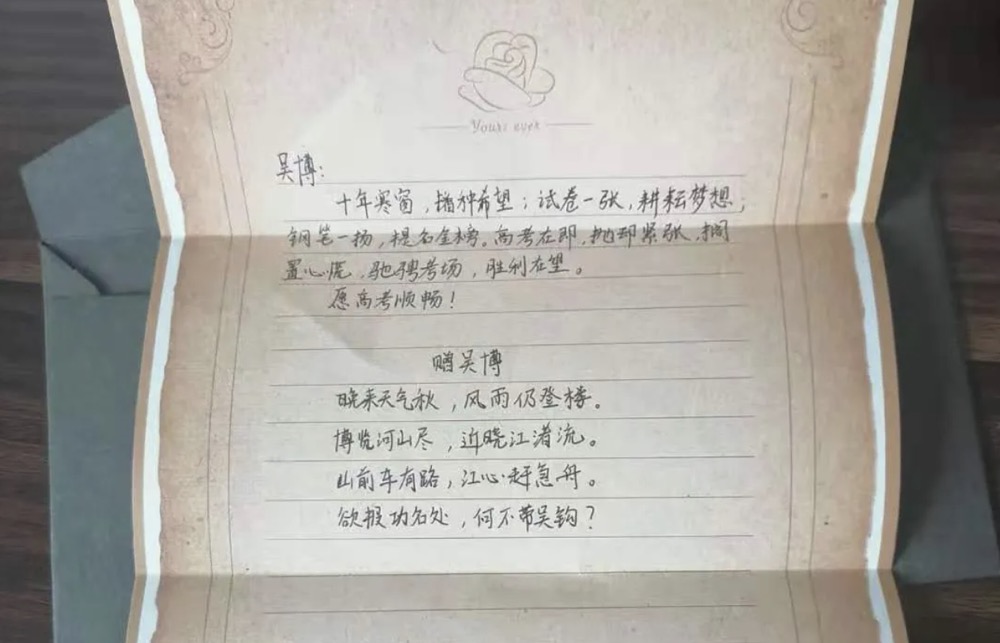 Yours ever
吴博：
十年寒窗，播种希望；试卷一张，耕耘梦想；
钢笔一扬，提名金榜。高考在即，抛却紧张，搁
置心慌，驰骋考场，胜利在望。
愿高考顺畅！
赠吴博
晚来天气秋，风雨仍登楼。
博览河山尽，近晓江渚流。
山前车有路，江心赶急舟。
欲报功名处，何不带吴钩？